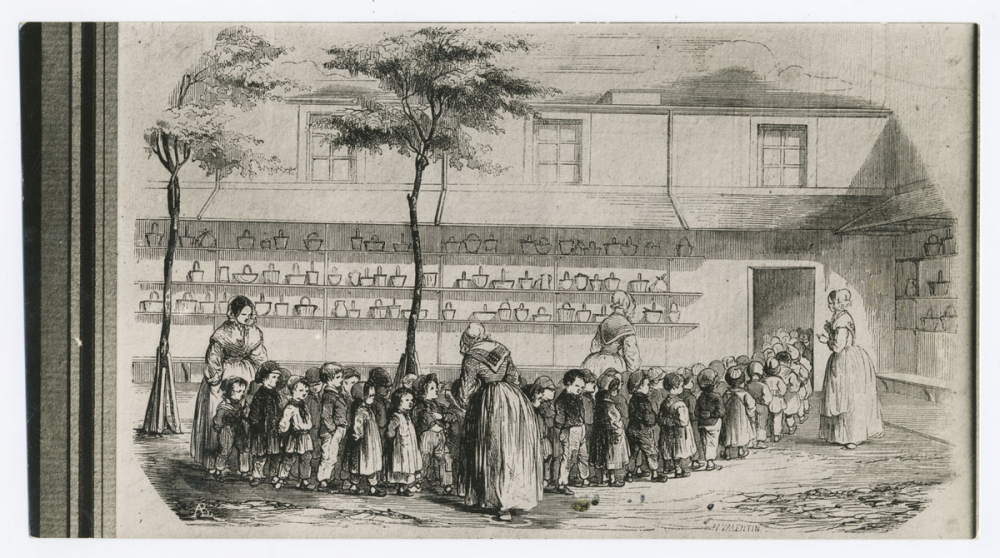 AB
H VALENTIN